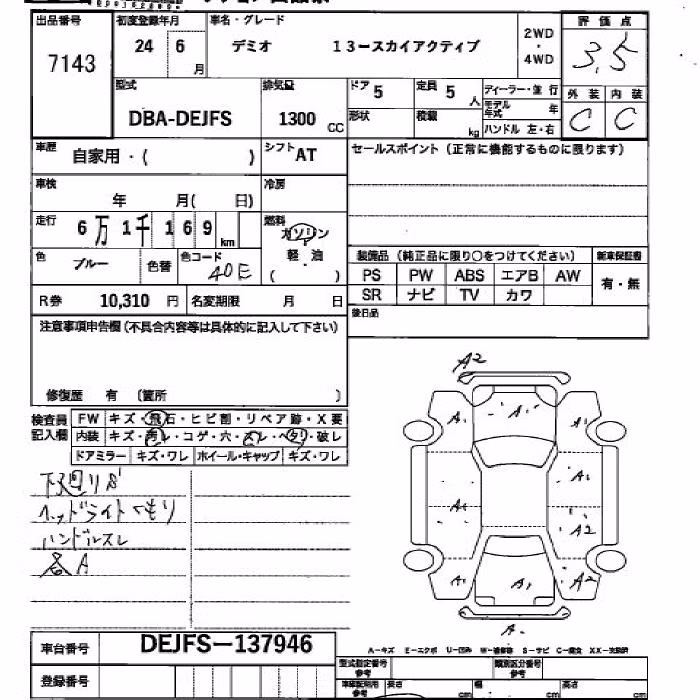 出品番号 初度登録年月 車名・グレード 評価点
7143 24 6月 デミオ 13ースカイアクティブ 2WD・4WD 3.5
型式 排気量 ドア 5 定員 5人 ディーラー・並行 外装 内装
DBA-DEJFS 1300 CC 形状 積載 kg モデル年式 年 C C
ハンドル 左・右
車歴 自家用・( ) シフト AT セールスポイント(正常に機能するものに限ります)
車検 年 月( 日) 冷房
走行 6万1千169km 燃料 ガソリン
軽・油
( )
色 ブルー 色替 色コード 40E
装備品(純正品に限り○をつけてください) 新車保証書
PS PW ABS エアB AW 有・無
SR ナビ TV カワ
R券 10,310円 名変期限 月 日
後日品
注意事項申告欄(不具合内容等は具体的に記入して下さい)
修復歴 有 (箇所 )
検査員記入欄 FW キズ・飛石・ヒビ割・リペア跡・X要
内装 キズ・コゲ・穴・スレ・ヘタリ・破レ
ドアミラー キズ・ワレ ホイール・キャップ キズ・ワレ
下廻りS
ヘッドライトくもり
ハンドルスレ
各A
A2
A1 A1 A1
A1
A1
A2
A1 A1 A2
A
車台番号 DEJFS-137946
A-キズ E-エクボ U-凹み W-補修跡 S-サビ C-腐食 XX-交換済
型式指定番号 類別区分番号
登録番号
長さ cm 幅 cm 高さ cm